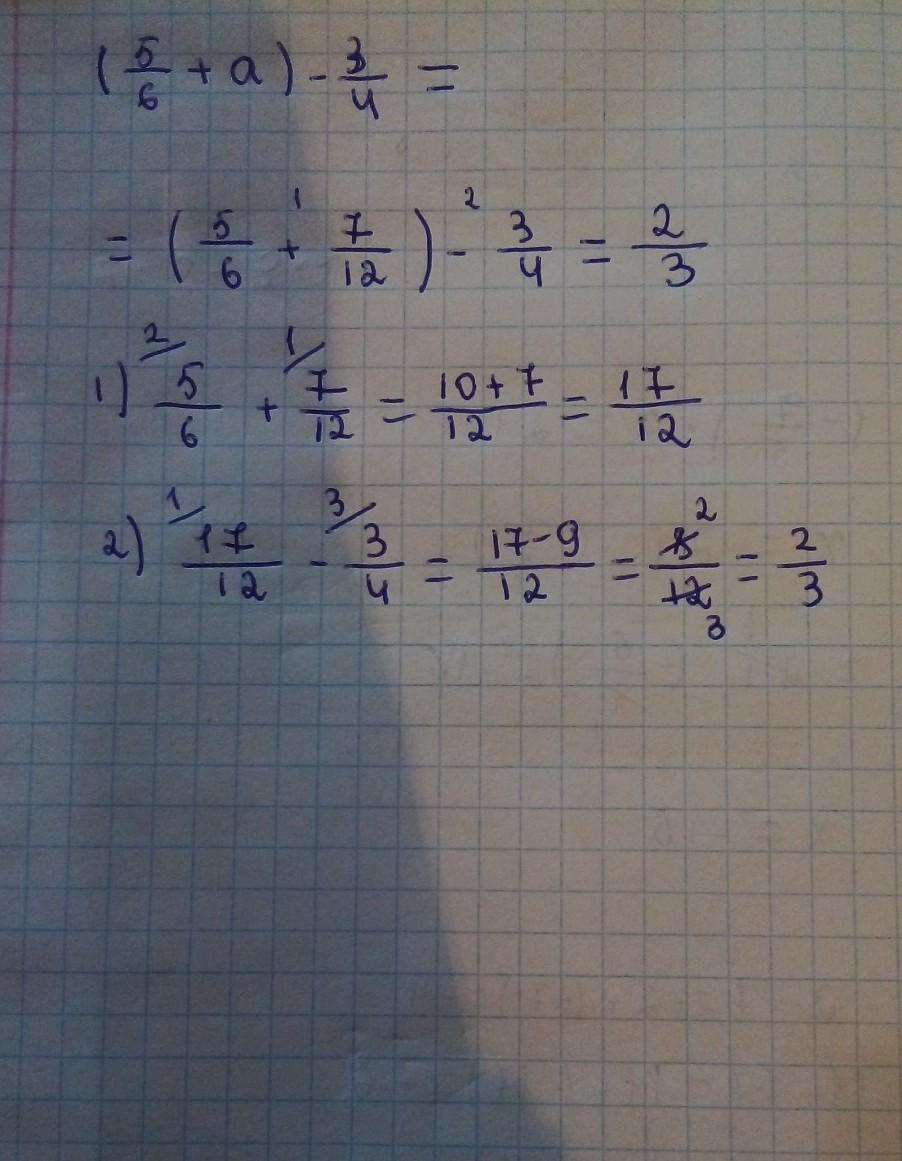 (5/6 + a) - 3/4 =
= (5/6 +¹ 7/12) -² 3/4 = 2/3
1) ²/ 5/6 + ¹/ 7/12 = (10+7)/12 = 17/12
2) ¹/ 17/12 - ³/ 3/4 = (17-9)/12 = 8²/12₃ = 2/3